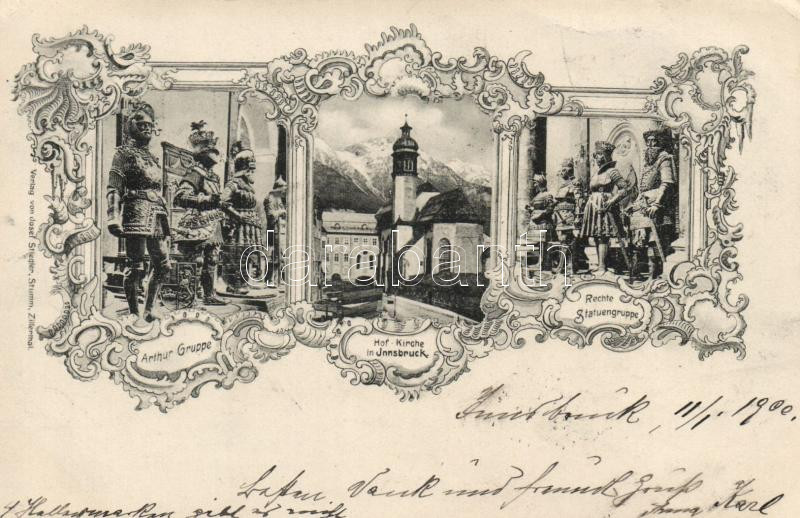 Verlag von Josef Stiegler, Stumm, Zillerthal.
Arthur Gruppe
Hof-Kirche
in Innsbruck.
Rechte
Statuengruppe
darabanth
Innsbruck, 11/1. 1900.
Besten Dank und freundl. Gruß
Karl
gibt es nicht